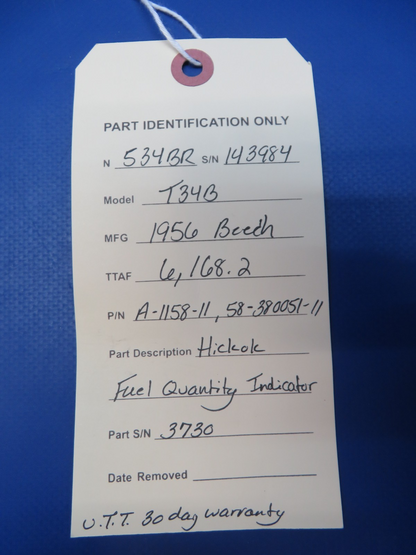 PART IDENTIFICATION ONLY
N 534BR S/N 143984
Model T34B
MFG 1956 Beech
TTAF 6,168.2
P/N A-1158-11, 58-380051-11
Part Description Hickok
Fuel Quantity Indicator
Part S/N 3730
Date Removed
U.T.T. 30 day warranty